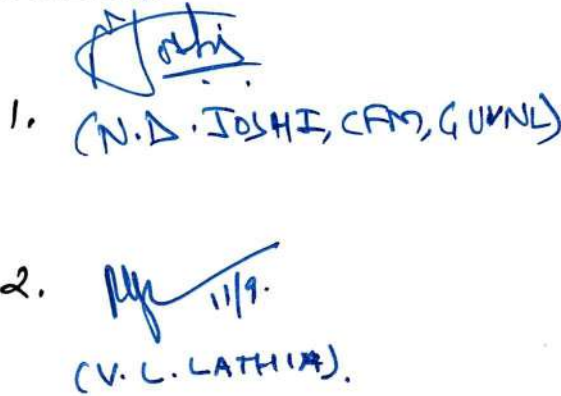 Joshi
1. (N.D. JOSHI, CFM, GUVNL)
2. 11/9.
(V. L. LATHIA).